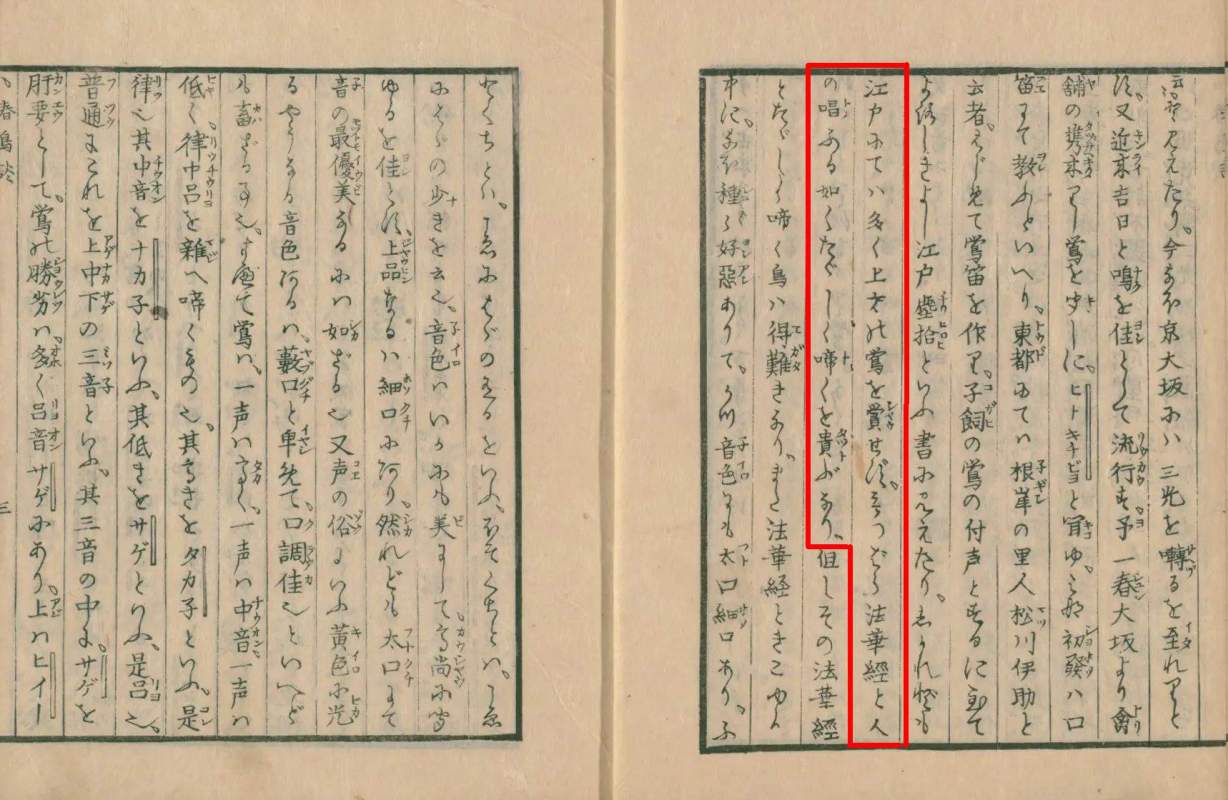 云々見えたり。今なほ京大坂にハ三光を囀るを至れりと
す又近来吉日と鳴を佳として流行す予一春大坂より禽
舗の携来りし鶯を聞しに。ヒトキチピヨと聞ゆ
初發ハ口
笛にて教ふといへり。東都にてハ根岸の里人松川伊助と
云者。はじめて鶯笛を作り。子飼の鶯の付声とする
よろしきよし江戸塵拾といふ書に見えたり。しかれども
江戸にてハ多く上げの鶯を賞せず。法華經と人
の唱ふる如くたゞしく啼くを貴ぶなり。但しその法華經
とたゞしく啼く鳥ハ得難きなり。また法華経ときこゆる
中に。なほ種々好惡ありて。音色にも太口細口あり。ふ
とくちとハ。
の少きを云也。音色ハいかにも美にして。高尚に
ゆるを佳とす。上品なるハ細口にあり。然れども太口にて
音の最優美なるにハ如ざる也又声の俗にいふ黄色に光
るやうなる音色あるハ。藪口と卑めて。口調佳也といへど
も畜ざる事也。て鶯ハ。一声ハ高く。一声ハ中音一声ハ
低く律中呂を雑へ啼くもの也。其高きをタカ子といふ。是
律也其中音をナカ子といふ。其低きをサゲといふ。是呂也。
普通にこれを上中下の三音といふ。其三音の中に。サゲを
肝要として。鶯の勝劣ハ。多く呂音サゲにあり。上ハヒイー
春鳥談
三